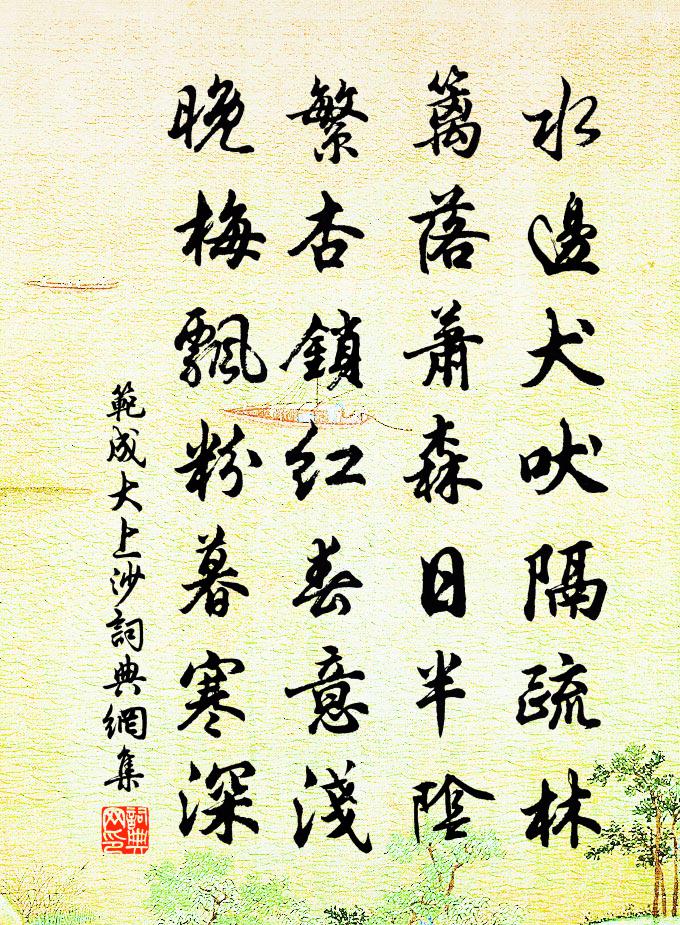 水邊犬吠隔疏林
籬落蕭森日半陰
繁杏鎖紅春意淺
晚梅飄粉暮寒深
範成大上沙詞典網集
詞典網印